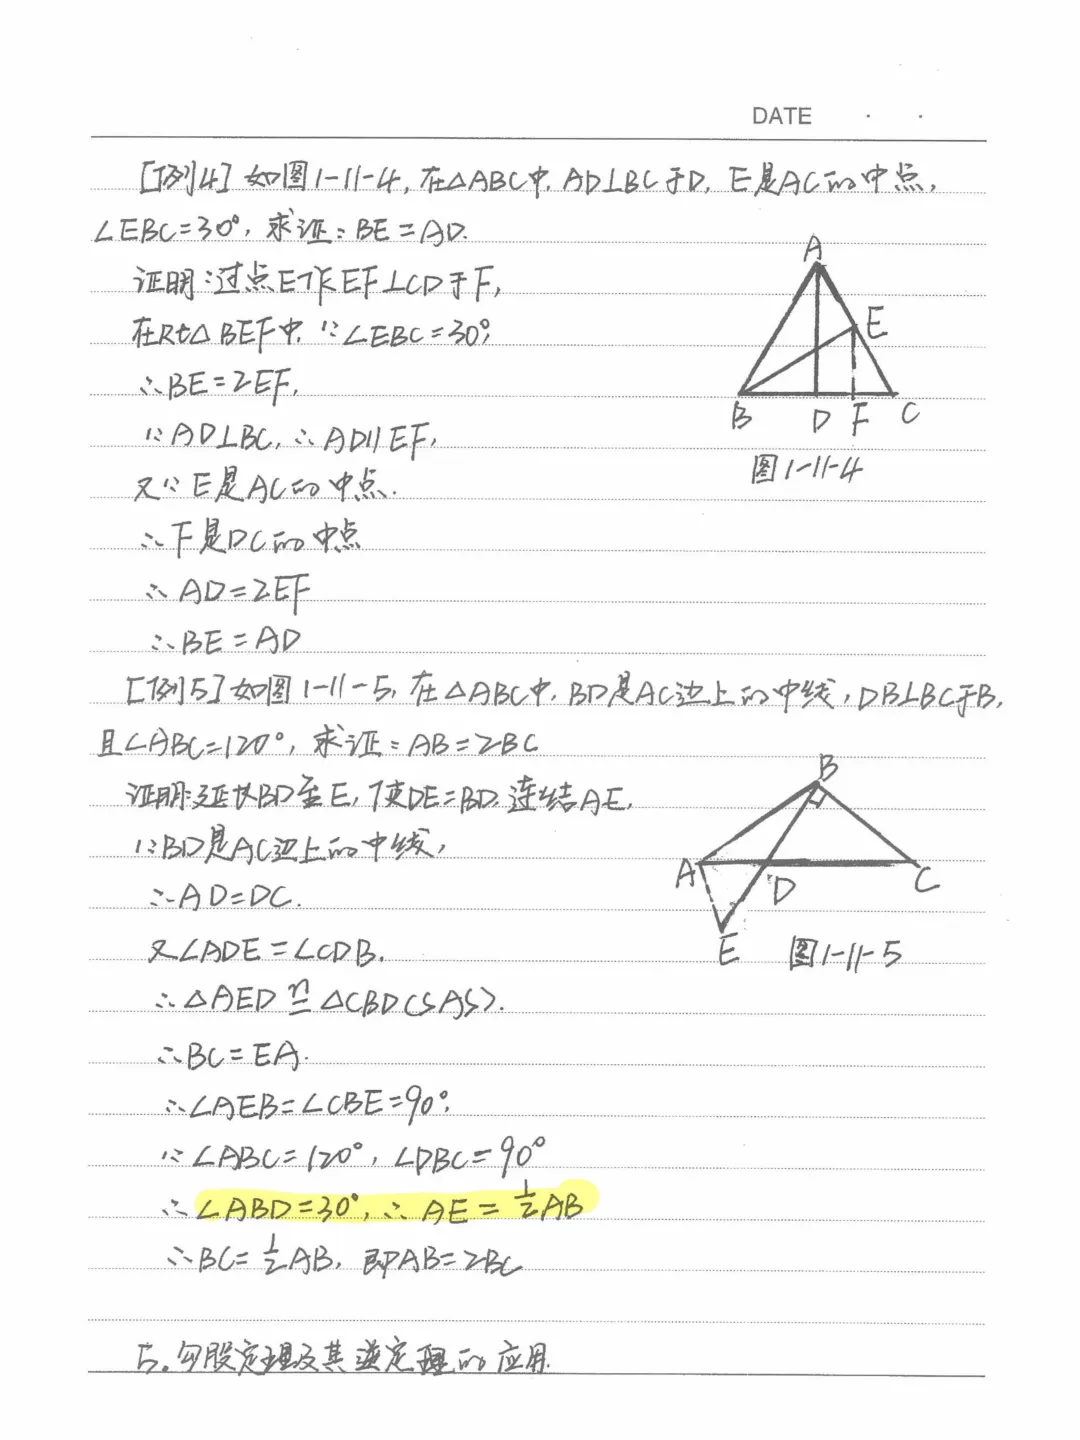 DATE · ·
[例4] 如图1-11-4, 在△ABC中, AD⊥BC于D, E是AC的中点,
∠EBC=30°, 求证: BE=AD.
证明: 过点E作EF⊥CD于F,
在Rt△BEF中, ∵∠EBC=30°,
∴BE=2EF,
∵AD⊥BC, ∴AD∥EF,
又∵E是AC的中点.
∴F是DC的中点
∴AD=2EF
∴BE=AD
A
E
B D F C
图1-11-4
[例5] 如图1-11-5, 在△ABC中, BD是AC边上的中线, DB⊥BC于B,
且∠ABC=120°, 求证: AB=2BC
证明: 延长BD至E, 使DE=BD, 连结AE,
∵BD是AC边上的中线,
∴AD=DC.
又∠ADE=∠CDB.
∴△AED≌△CBD(SAS).
∴BC=EA.
∴∠AEB=∠CBE=90°,
∵∠ABC=120°, ∠DBC=90°
∴∠ABD=30°, ∴AE=1/2AB
∴BC=1/2AB, 即AB=2BC
B
A D C
E
图1-11-5
5. 勾股定理及其逆定理的应用.